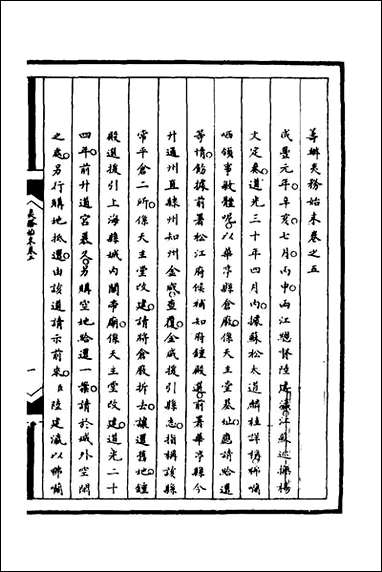 籌辦夷務始末卷之五
咸豐元年辛亥七月丙申兩江總督陸建瀛江蘇巡撫楊
文定奏道光三十年四月內據蘇松太道麟桂詳稱咈囒
哂領事敏體呢以華亭縣倉廒係天主堂基址應請給還
等情飭據前署松江府候補知府鍾殿選前署華亭縣今
升通州直隸州知州金咸查覆金咸援引縣志指稱該縣
常平倉二所係天主堂改建請將倉廒折去讓還舊地鍾
殿選援引上海縣城內關帝廟係天主堂改建道光二十
四年前升道宮慕久另購空地給還一案請於城外空閒
之處另行購地抵還由該道請示前來臣陸建瀛以咈囒
夷務始末卷五
一